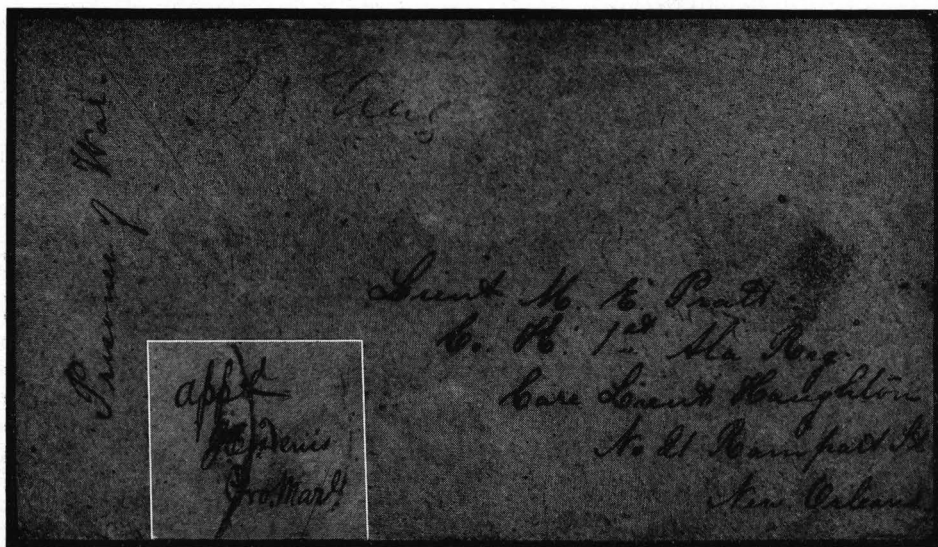 Prisoner of War.
Aug
Lieut M. E. Pratt
Co. H. 1st Ala Reg.
Care Lieut Haughton
No 21 Rampart St
New Orleans
appd
Pro. Marsl